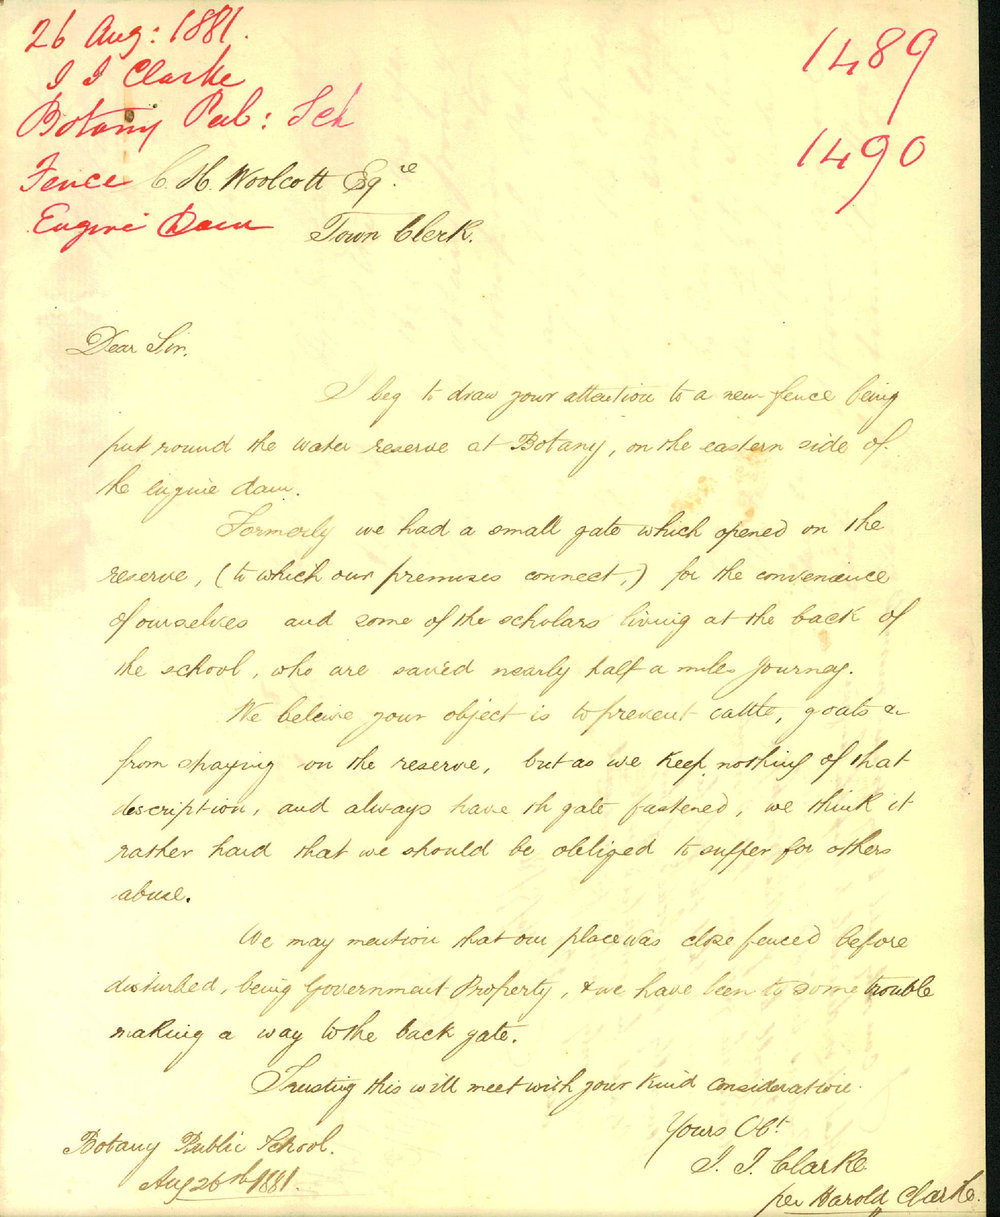 26 Aug: 1881.
J J Clarke
Botany Pub: Sch
Fence
Engine Dam
1489
1490
C. H. Woolcott Esq.re
Town Clerk.
Dear Sir,
I beg to draw your attention to a new fence being
put round the water reserve at Botany, on the eastern side of
the engine dam.
Formerly we had a small gate which opened on the
reserve, (to which our premises connect,) for the convenience
of ourselves and some of the scholars living at the back of
the school, who are saved nearly half a miles journey.
We beleive your object is to prevent cattle, goats &c
from straying on the reserve, but as we keep nothing of that
description, and always have th gate fastened, we think it
rather hard that we should be obliged to suffer for others
abuse.
We may mention that our place was close fenced before
disturbed, being Government Property, & we have been to some trouble
making a way to the back gate.
Trusting this will meet with your kind consideration.
Yours Obt
J. J. Clarke
per Harold Clarke.
Botany Public School.
Aug 26th 1881.